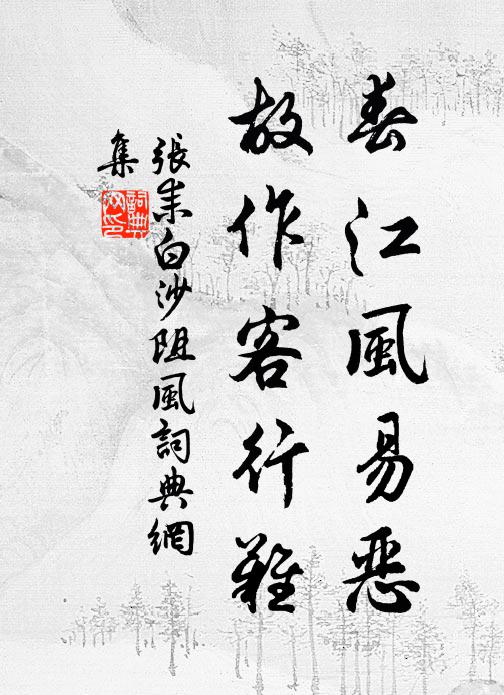 春江風易惡
故作客行難
張耒白沙阻風詞典網
集
詞典
网印